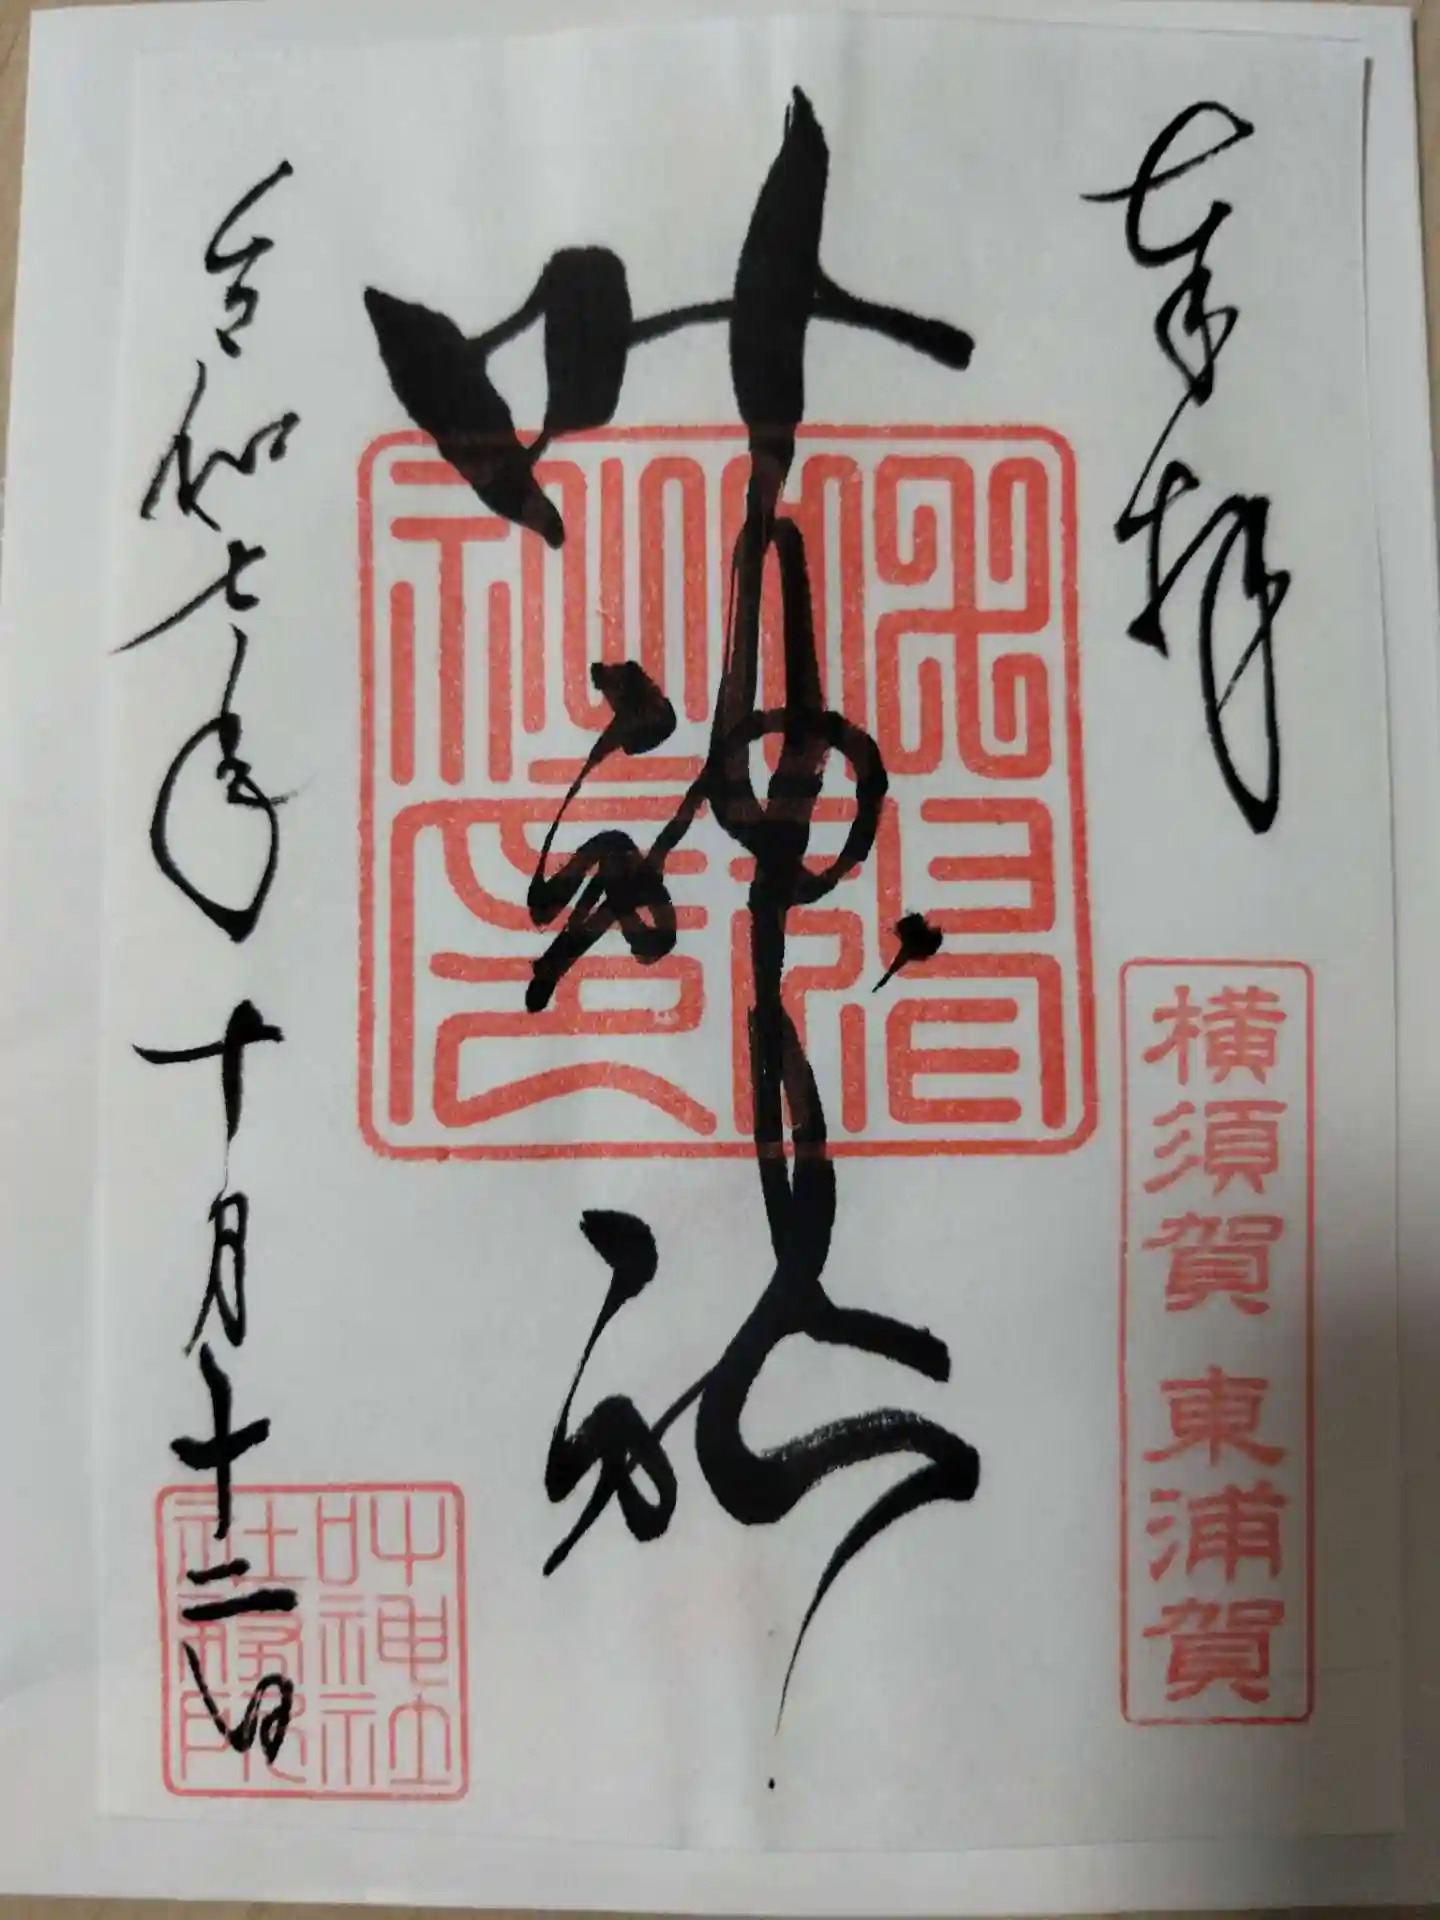 奉拝
横須賀 東浦賀
叶神社
令和七年十月十二日
叶神社
社務所